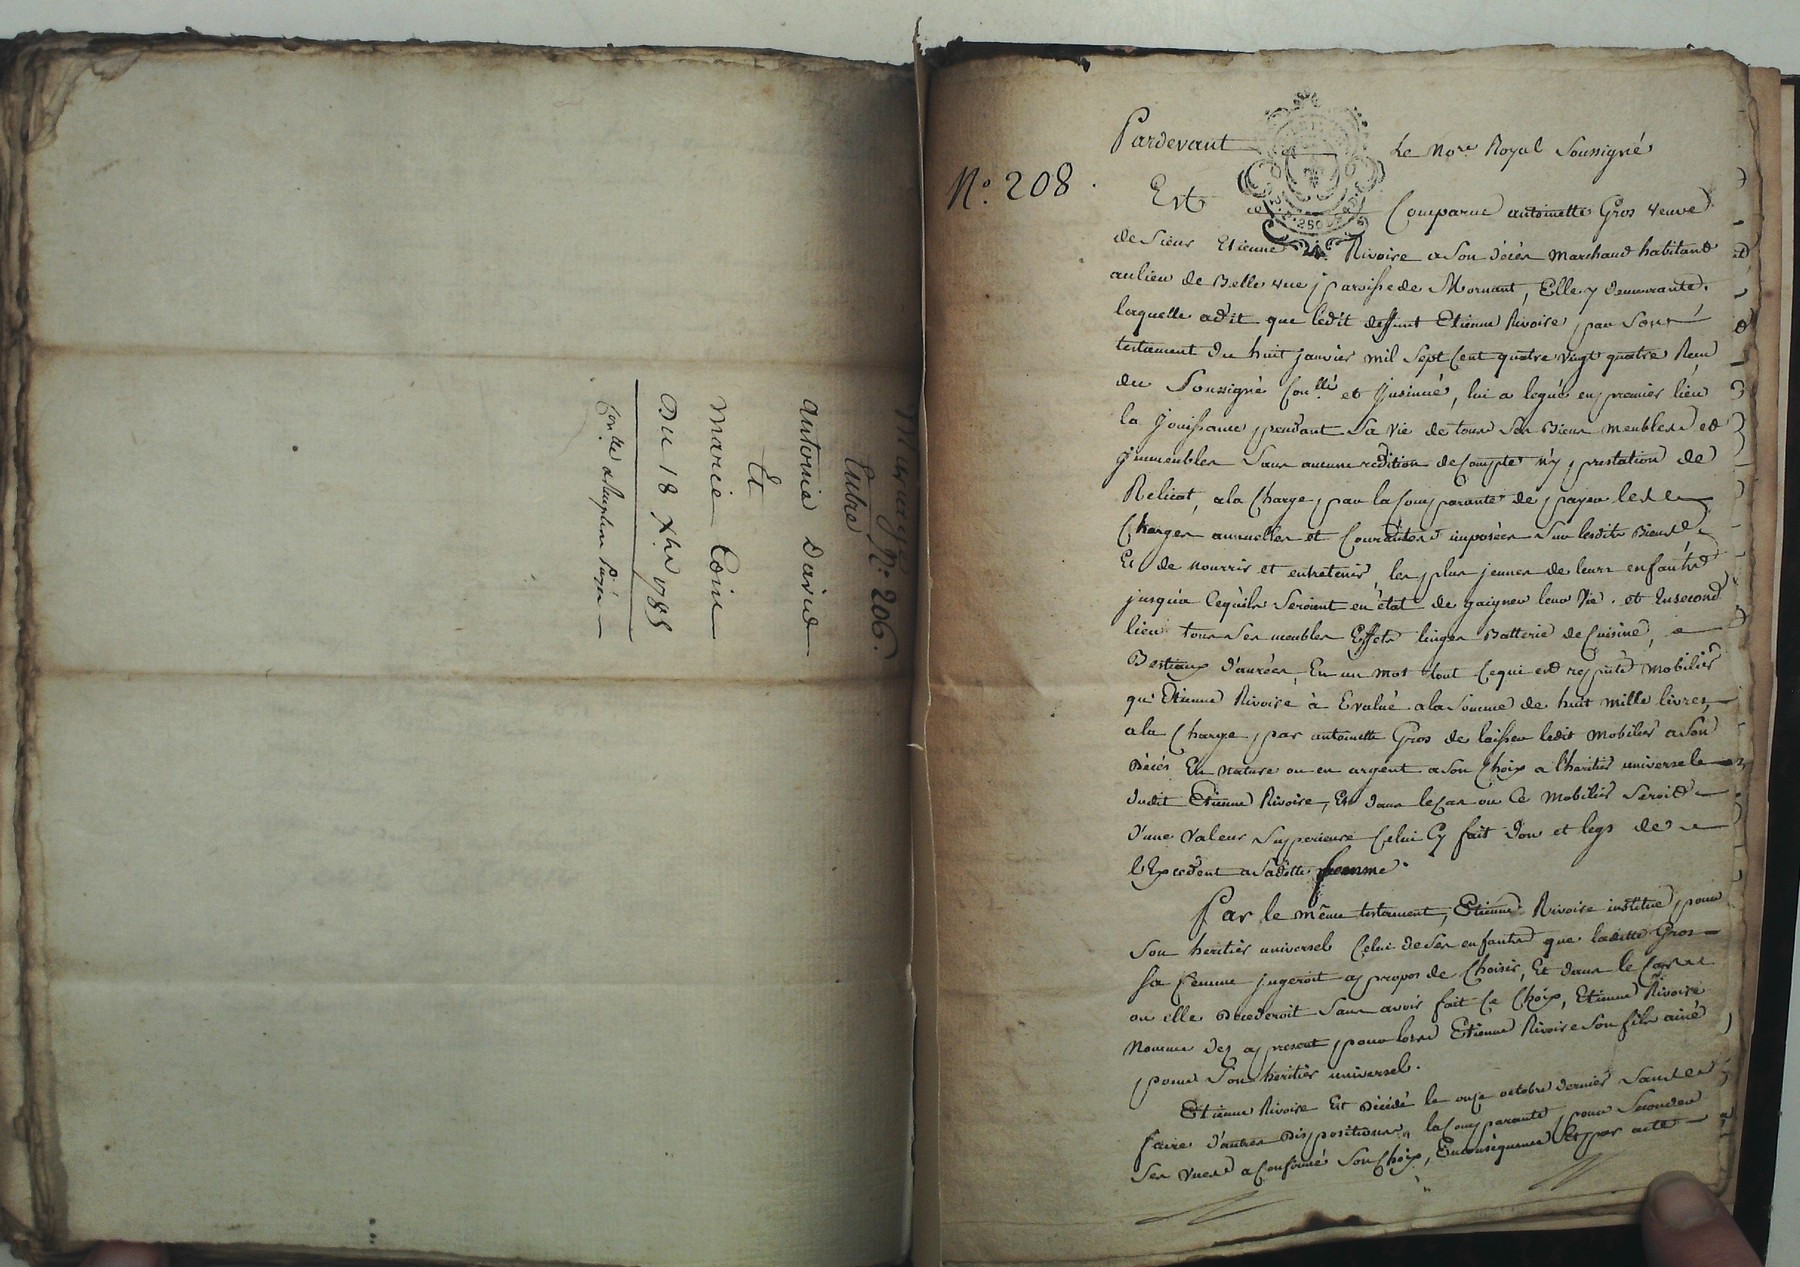 Mariage N.° 206.
Entre
antoine david
Et
marie Coin
Du 18 Xbre 1785
N.° 208
Pardevant Le No.re Royal Soussigné
Est comparue antoinette Gros veuve
de sieur Etienne Rivoire a son décés marchand habitant
au lieu de Belle vue, paroisse de Mornant, Elle y demeurante.
laquelle a dit que ledit deffunt Etienne Rivoire, par son
testament du huit janvier mil sept cent quatre vingt quatre, Reçu
du Soussigné Con.llé et Insinué, lui a legué en premier lieu
la jouissance, pendant sa vie de tous ses Biens meubles et
immeubles sans aucune redition de Compte n'y prestation de
Relicat, a la Charge, par la Comparante de payer les
Charges annuelles et Courantes imposées sur lesdits Biens,
Et de nourrir et entretenir, les plus jeunes de leurs enfants
jusqu'a cequ'ils seroient en état de gaigner leur vie. et En second
lieu tous ses meubles Effets linges Batterie de Cuisine,
Bestiaux d'anrées, En un mot tout ce qui est reputé mobilier
qu'Etienne Rivoire à Evalué a la somme de huit mille livres,
a la Charge, par antoinette Gros de laisser ledit mobilier a son
Décés En nature ou en argent a son choix a l'heritier universel
dudit Etienne Rivoire, Et dans le cas ou ce mobilier seroit
d'une valeur superieure Celui Cy fait don et legs de
l'Excedent a sadite femme.
Par le même testament, Etienne Rivoire institue, pour
son heritier universel Celui de ses enfants que ladite Gros
sa femme jugeroit apropos de Choisir, Et dans le Cas
ou elle Decederoit sans avoir fait ce Choix, Etienne Rivoire
nomme des apresent, pour lors Etienne Rivoire son fils ainé
pour son heritier universel.
Etienne Rivoire Est Décédé le onze octobre dernier sans
faire d'autres Dispositions, la Comparante, pour seconder
ses vues a Confirmé son Choix, En conséquence Et par acte